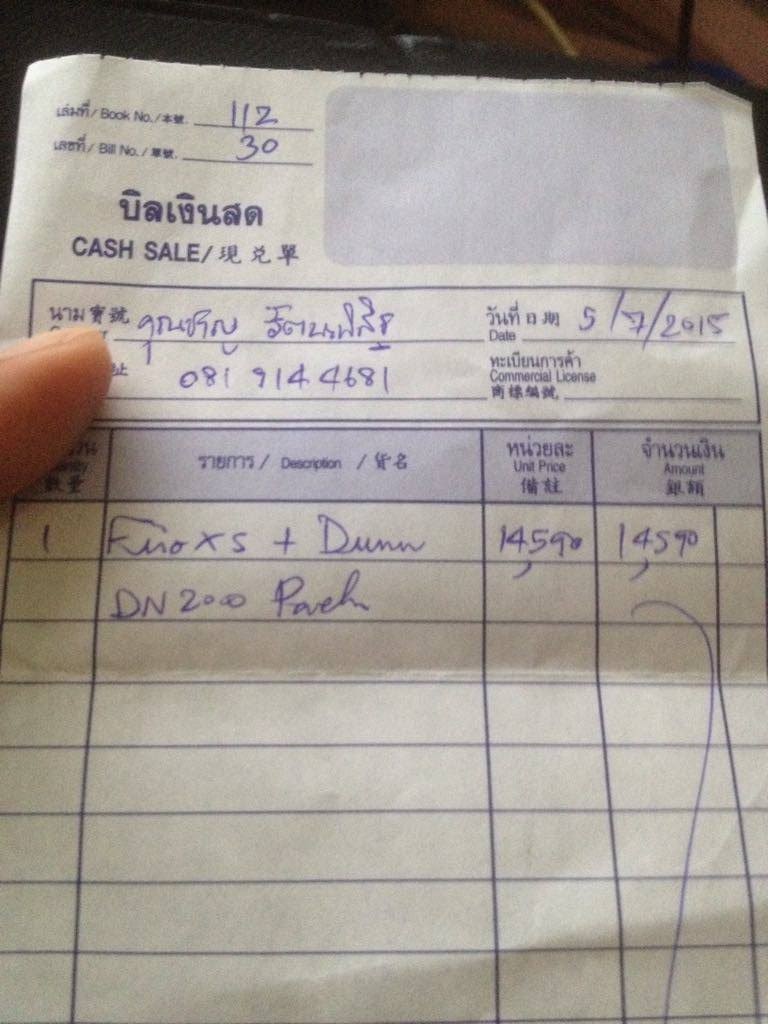 เล่มที่ / Book No. / 本號. 112
เลขที่ / Bill No. / 單號. 30
บิลเงินสด
CASH SALE / 現兌單
นาม 寶號 คุณชาญ
วันที่ 日期 Date 5/7/2015
址 081 914 4681
ทะเบียนการค้า
Commercial License
商標編號
數量
รายการ / Description / 貨名
หน่วยละ
Unit Price
備註
จำนวนเงิน
Amount
銀額
1 Fiio X5 + Dunu 14,590 14,590
DN 2000 Pack